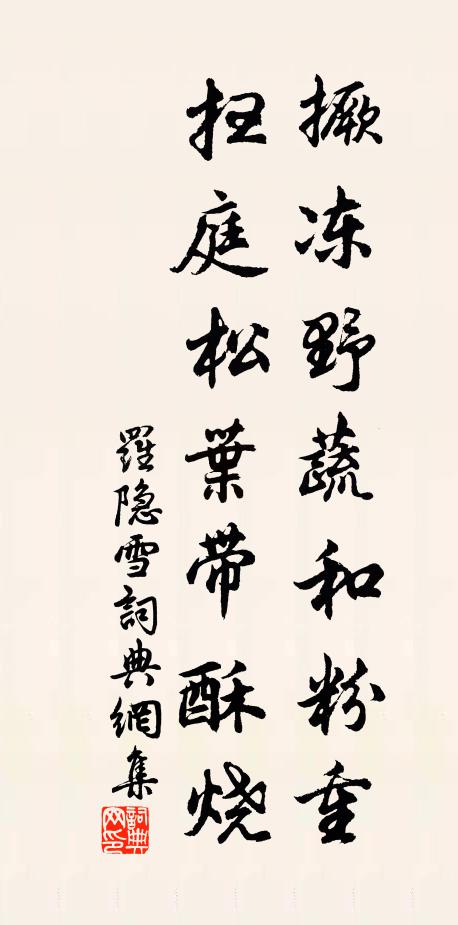 撅冻野蔬和粉重
扫庭松葉带酥烧
羅隐雪詞典網集
詞典
网印